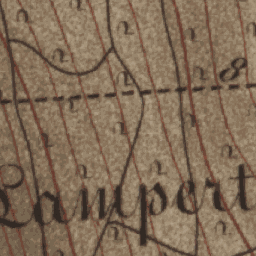 8
Lampert